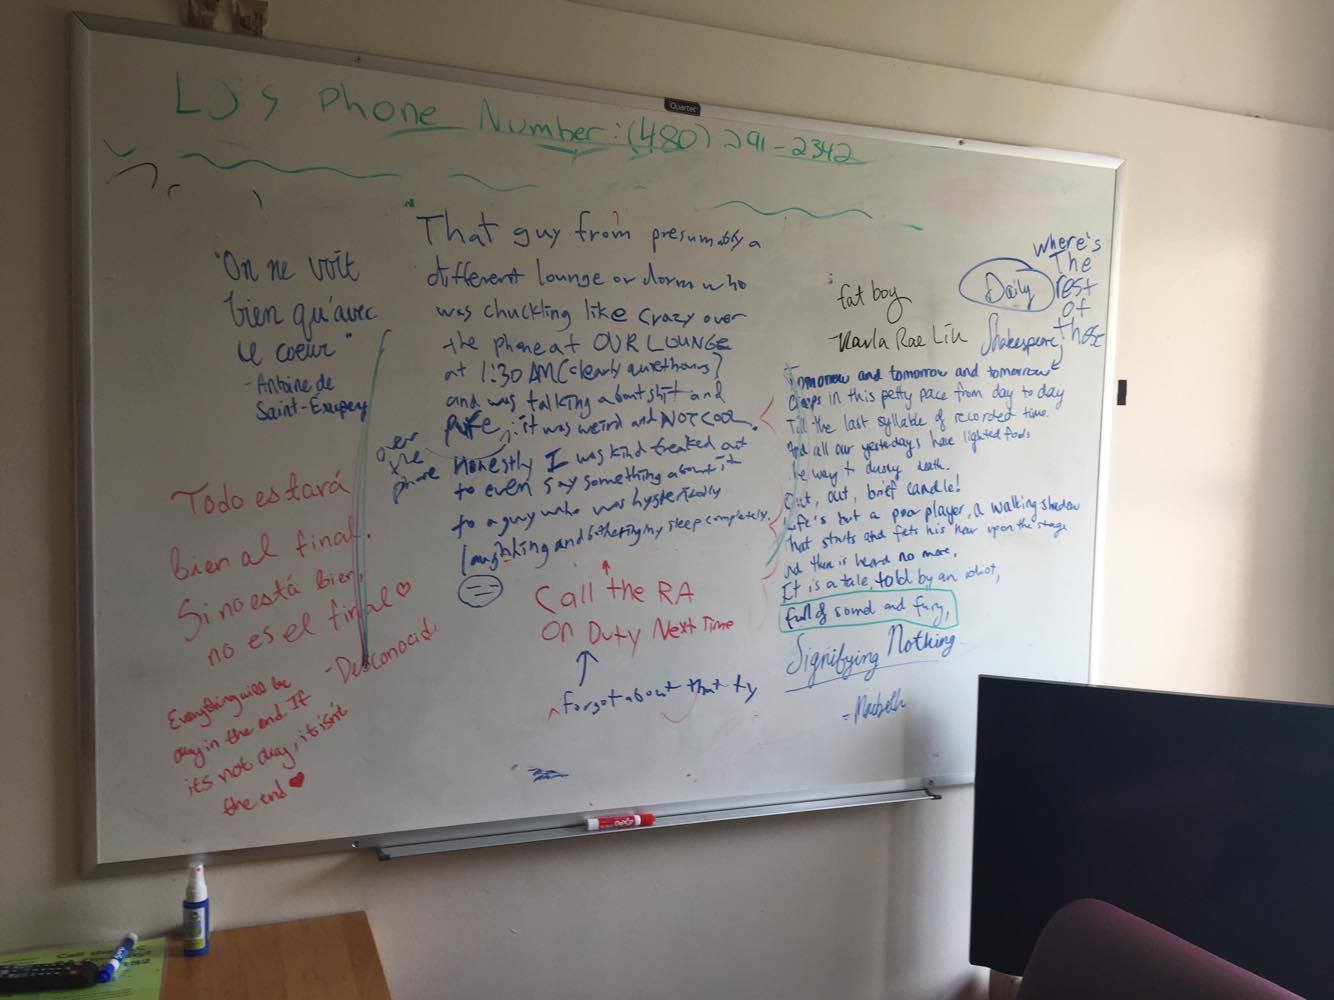 LJ's Phone Number: (480) 291-2342
Quartet
"On ne voit
bien qu'avec
le coeur"
- Antoine de
Saint-Exupery
Todo estará
bien al final.
Si no está bien,
no es el final ♡
- Desconocido
Everything will be
okay in the end. If
it's not okay, it isn't
the end ♥
"That guy from presumably a
different lounge or dorm who
was chuckling like crazy over
the phone at OUR LOUNGE
at 1:30 AM (clearly quiet hours)
and was talking about shit and
puke; it was weird and NOT COOL.
over
the
phone
Honestly I was kind freaked out
to even say something about it
to a guy who was hysterically
laughing and bothering my sleep completely.
Call the RA
On Duty Next Time
forgot about that ty
"fat boy
- Karla Rae Liu
Daily
Shakespeare
where's
The
rest
of
these
Tomorrow and tomorrow and tomorrow
Creeps in this petty pace from day to day
Till the last syllable of recorded time.
And all our yesterdays have lighted fools
The way to dusty death.
Out, out, brief candle!
Life's but a poor player, a walking shadow
that struts and frets his hour upon the stage
And then is heard no more.
It is a tale, told by an idiot,
full of sound and fury,
Signifying Nothing.
- Macbeth
EXPO
Call the